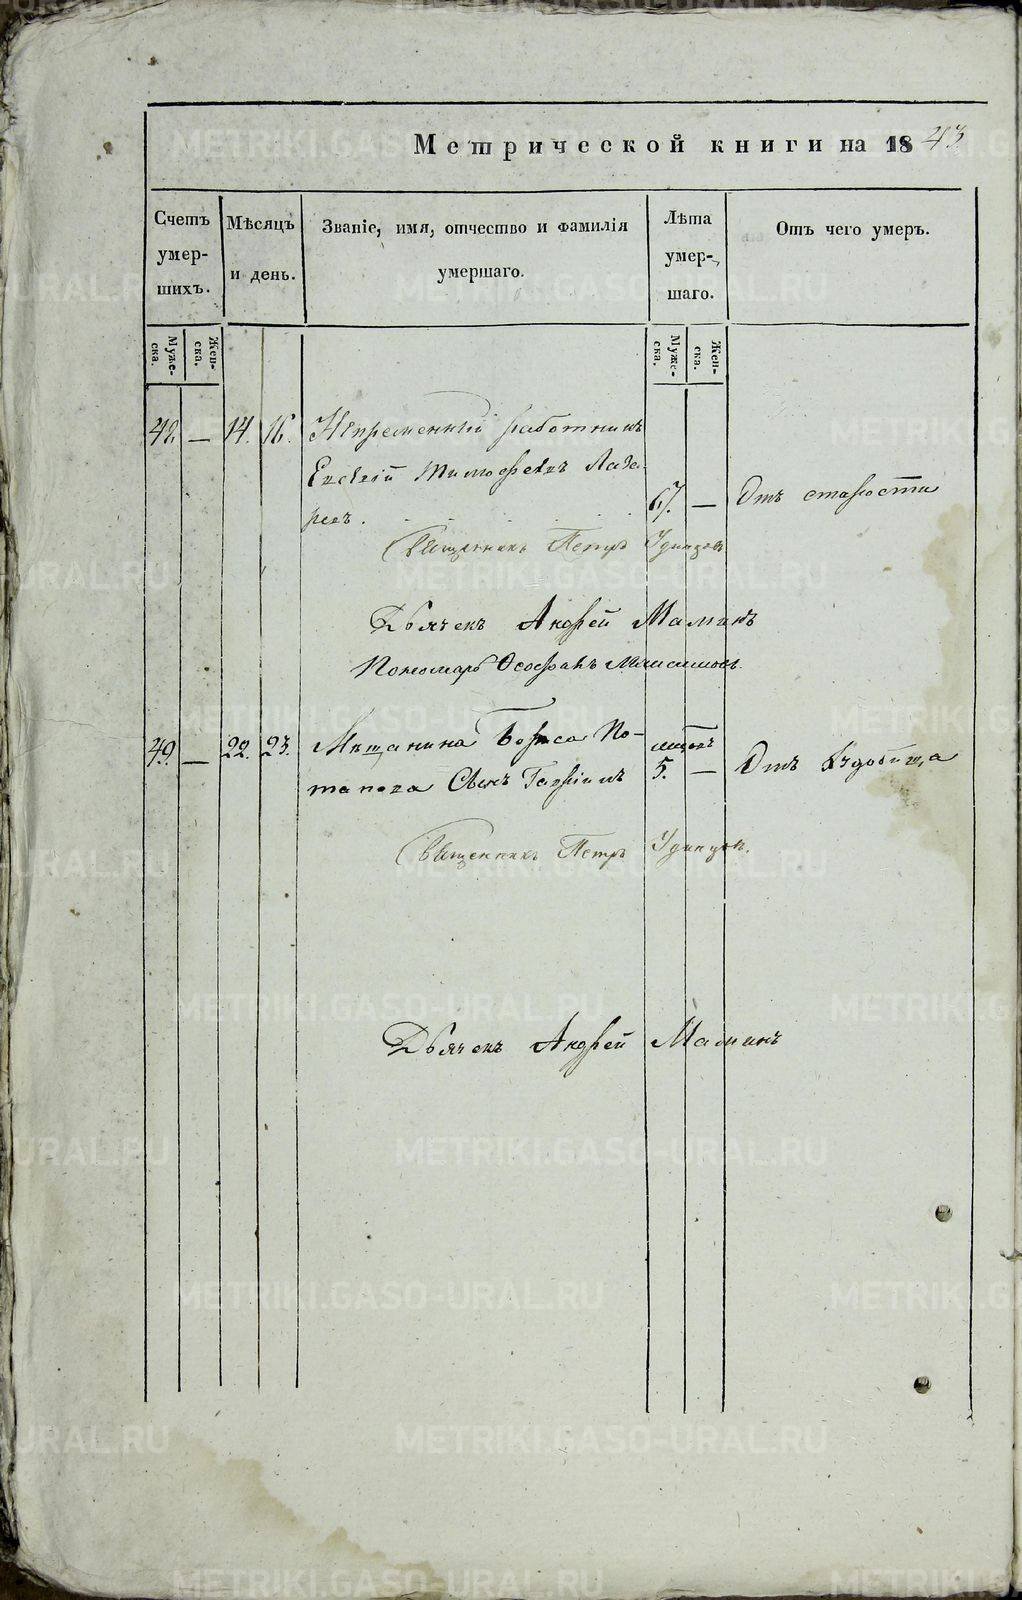 Метрической книги на 1843
Счетъ умершихъ.
Мѣсяцъ и день.
Званіе, имя, отчество и фамилія умершаго.
Лѣта умершаго.
Отъ чего умеръ.
Мужеска.
Женска.
Мужеска.
Женска.
42. — 14. 16. Непременный работникъ
Евсевій Тимофеевъ Лазарев. 67. — Отъ старости
Священникъ Петръ Удинцов
Дьячекъ Андрей Маминъ
Пономарь Ѳеофанъ Максимовъ.
43. — 22. 23. Мѣщанина Бориса По-
тапова Сынъ Гавріилъ 5. — Отъ
Священникъ Петръ Удинцов.
Дьячекъ Андрей Маминъ
METRIKI.GASO-URAL.RU